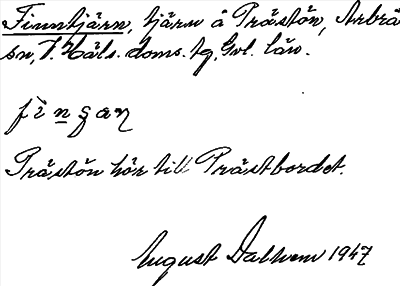 Finntjärn, tjärn å Prästön, Arbrå
sn, V. Häls. doms. tg, Gvl. län.
Prästön hör till Prästbordet.
August Dalhem 1947